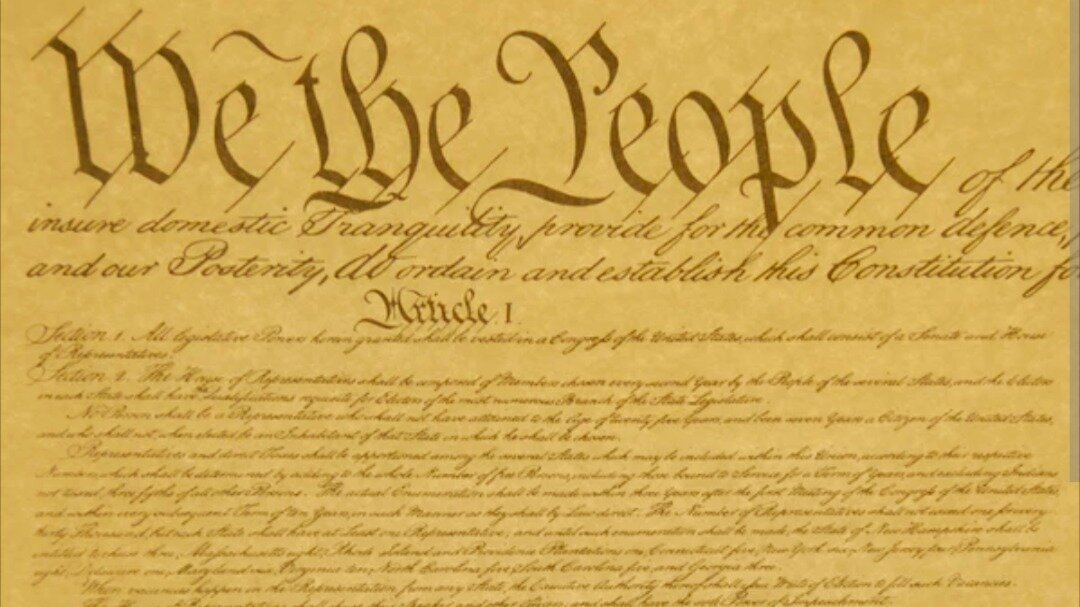 We the People of the
insure domestic Tranquility, provide for the common defence,
and our Posterity, do ordain and establish this Constitution fo
Article. I.
Section 1. All legislative Powers herein granted shall be vested in a Congress of the United States, which shall consist of a Senate and House
of Representatives.
Section 2. The House of Representatives shall be composed of Members chosen every second Year by the People of the several States, and the Electors
in each State shall have Qualifications requisite for Electors of the most numerous Branch of the State Legislature.
No Person shall be a Representative who shall not have attained to the Age of twenty five Years, and been seven Years a Citizen of the United States,
and who shall not, when elected, be an Inhabitant of that State in which he shall be chosen.
Representatives and direct Taxes shall be apportioned among the several States which may be included within this Union, according to their respective
Numbers, which shall be determined by adding to the whole Number of free Persons, including those bound to Service for a Term of Years, and excluding Indians
not taxed, three fifths of all other Persons. The actual Enumeration shall be made within three Years after the first Meeting of the Congress of the United States,
and within every subsequent Term of ten Years, in such Manner as they shall by Law direct. The Number of Representatives shall not exceed one for every
thirty Thousand, but each State shall have at Least one Representative; and until such enumeration shall be made, the State of New Hampshire shall be
entitled to chuse three, Massachusetts eight, Rhode Island and Providence Plantations one, Connecticut five, New York six, New Jersey four, Pennsylvania
eight, Delaware one, Maryland six, Virginia ten, North Carolina five, South Carolina five, and Georgia three.
When vacancies happen in the Representation from any State, the Executive Authority thereof shall issue Writs of Election to fill such Vacancies.
The House of Representatives shall chuse their Speaker and other Officers; and shall have the sole Power of Impeachment.